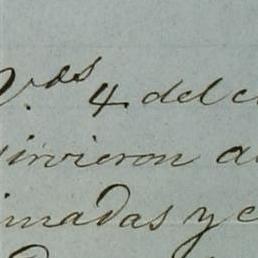 V.des 4 del c
sirvieron a
imadas y c